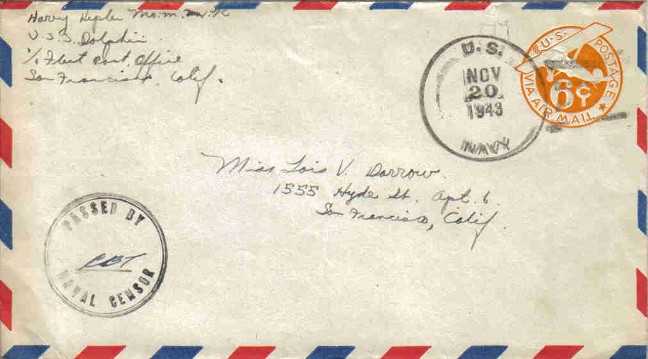 Harry
U.S.S. Dolphin
℅ Fleet Post Office
San Francisco, Calif.
U.S.
NOV
20
1943
NAVY
U.S. POSTAGE
6¢
VIA AIR MAIL
Miss Lois V. Darrow.
1555 Hyde St. Apt. 6.
San Francisco, Calif.
PASSED BY
NAVAL CENSOR